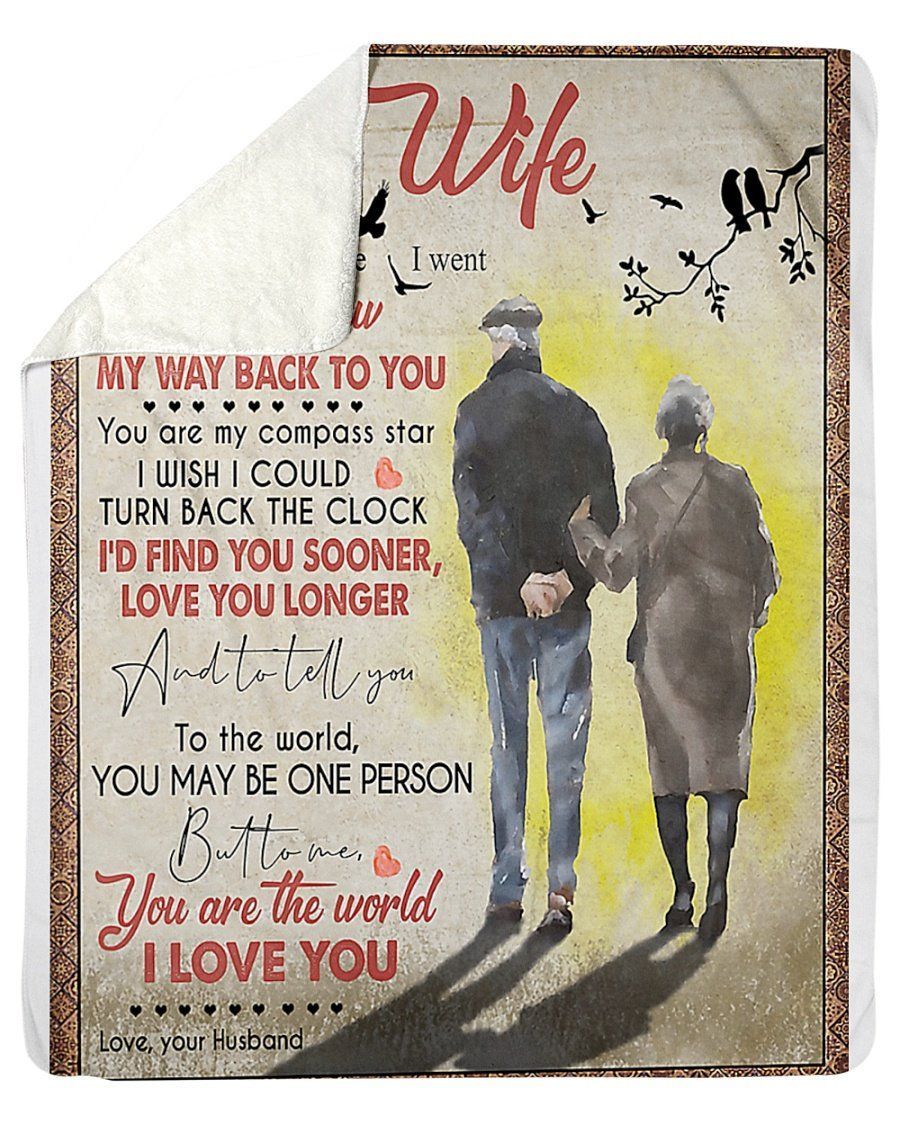 Wife
e I went
w
MY WAY BACK TO YOU
You are my compass star
I WISH I COULD
TURN BACK THE CLOCK
I'D FIND YOU SOONER,
LOVE YOU LONGER
And to tell you
To the world,
YOU MAY BE ONE PERSON
But to me,
You are the world
I LOVE YOU
Love, your Husband